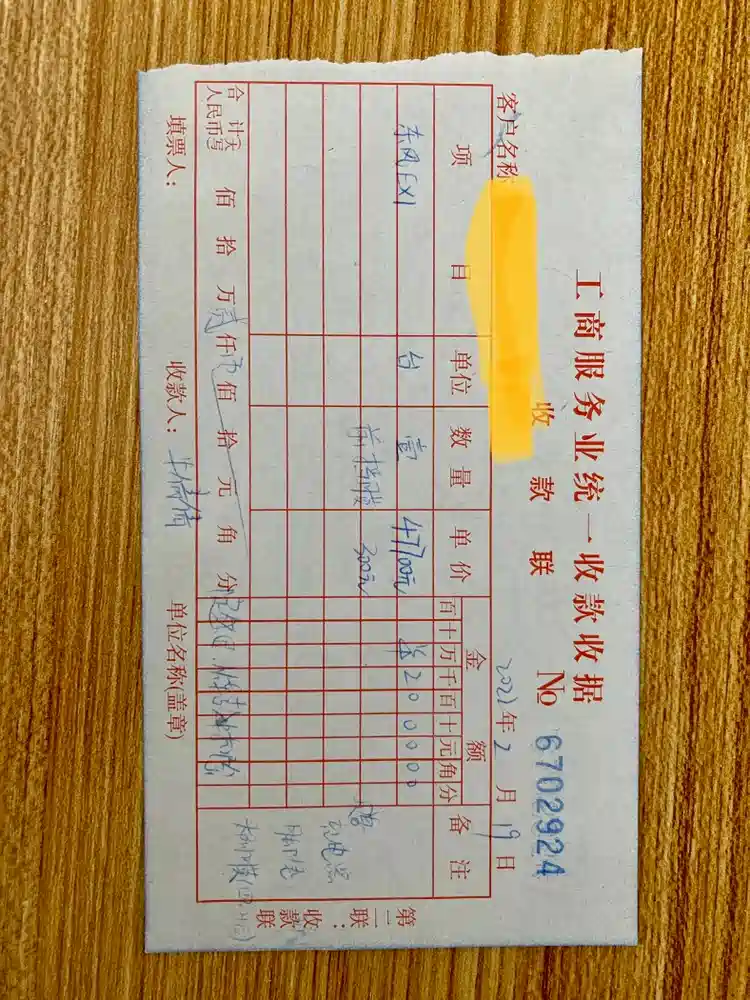 工商服务业统一收款收据
收款联
No 6702924
客户名称
2022年2月19日
项目 单位 数量 单价 金额 备注
百十万千百十元角分
东风EX1 台 壹 47700元 ¥200000
前挡膜 300元
充电器
脚垫
合计人民币大写 佰 拾 万 贰仟 佰 拾 元 角 分
填票人： 收款人： 单位名称(盖章)
第二联：收款联